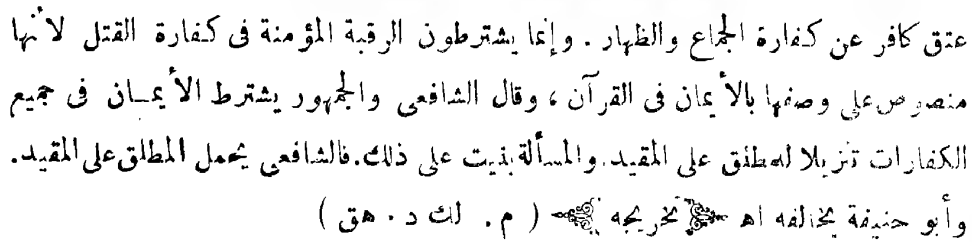 عتق كافر عن كفارة الجماع والظهار . وإنما يشترطون الرقبة المؤمنة فى كفارة القتل لأنها
منصوص على وصفها بالأيمان فى القرآن ، وقال الشافعى والجمهور يشترط الأيمـان فى جميع
الكفارات تنزيلا للمطلق على المقيد. والمسألة بنيت على ذلك. فالشافعى يحمل المطلق على المقيد.
وأبو حنيفة يخالفه اهـ تخريجه ( م . لك د . هق )